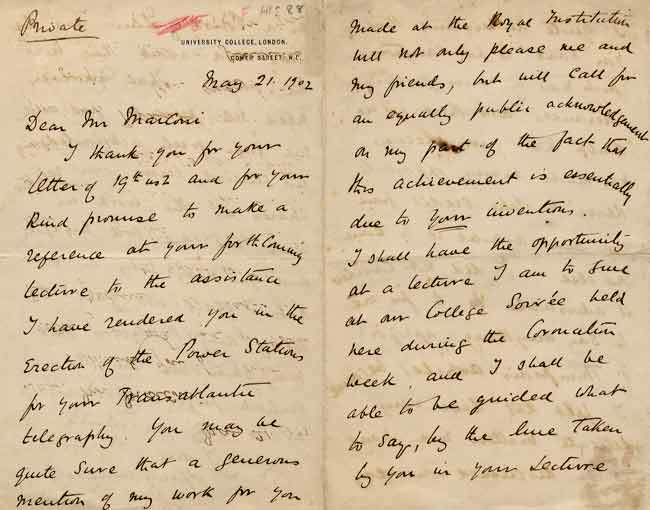 Private
UNIVERSITY COLLEGE, LONDON.
GOWER STREET, W.C.
May 21. 1902
Dear Mr Marconi
I thank you for your
letter of 19th inst and for your
kind promise to make a
reference at your forthcoming
lecture to the assistance
I have rendered you in the
Erection of the Power Stations
for your Transatlantic
telegraphy. You may be
quite sure that a generous
mention of my work for you
made at the Royal Institution
will not only please me and
my friends, but will call for
an equally public acknowledgement
on my part of the fact that
this achievement is essentially
due to your inventions.
I shall have the opportunity
at a lecture I am to give
at our College Soirée held
here during the Coronation
week and I shall be
able to be guided what
to say, by the line taken
by you in your lecture